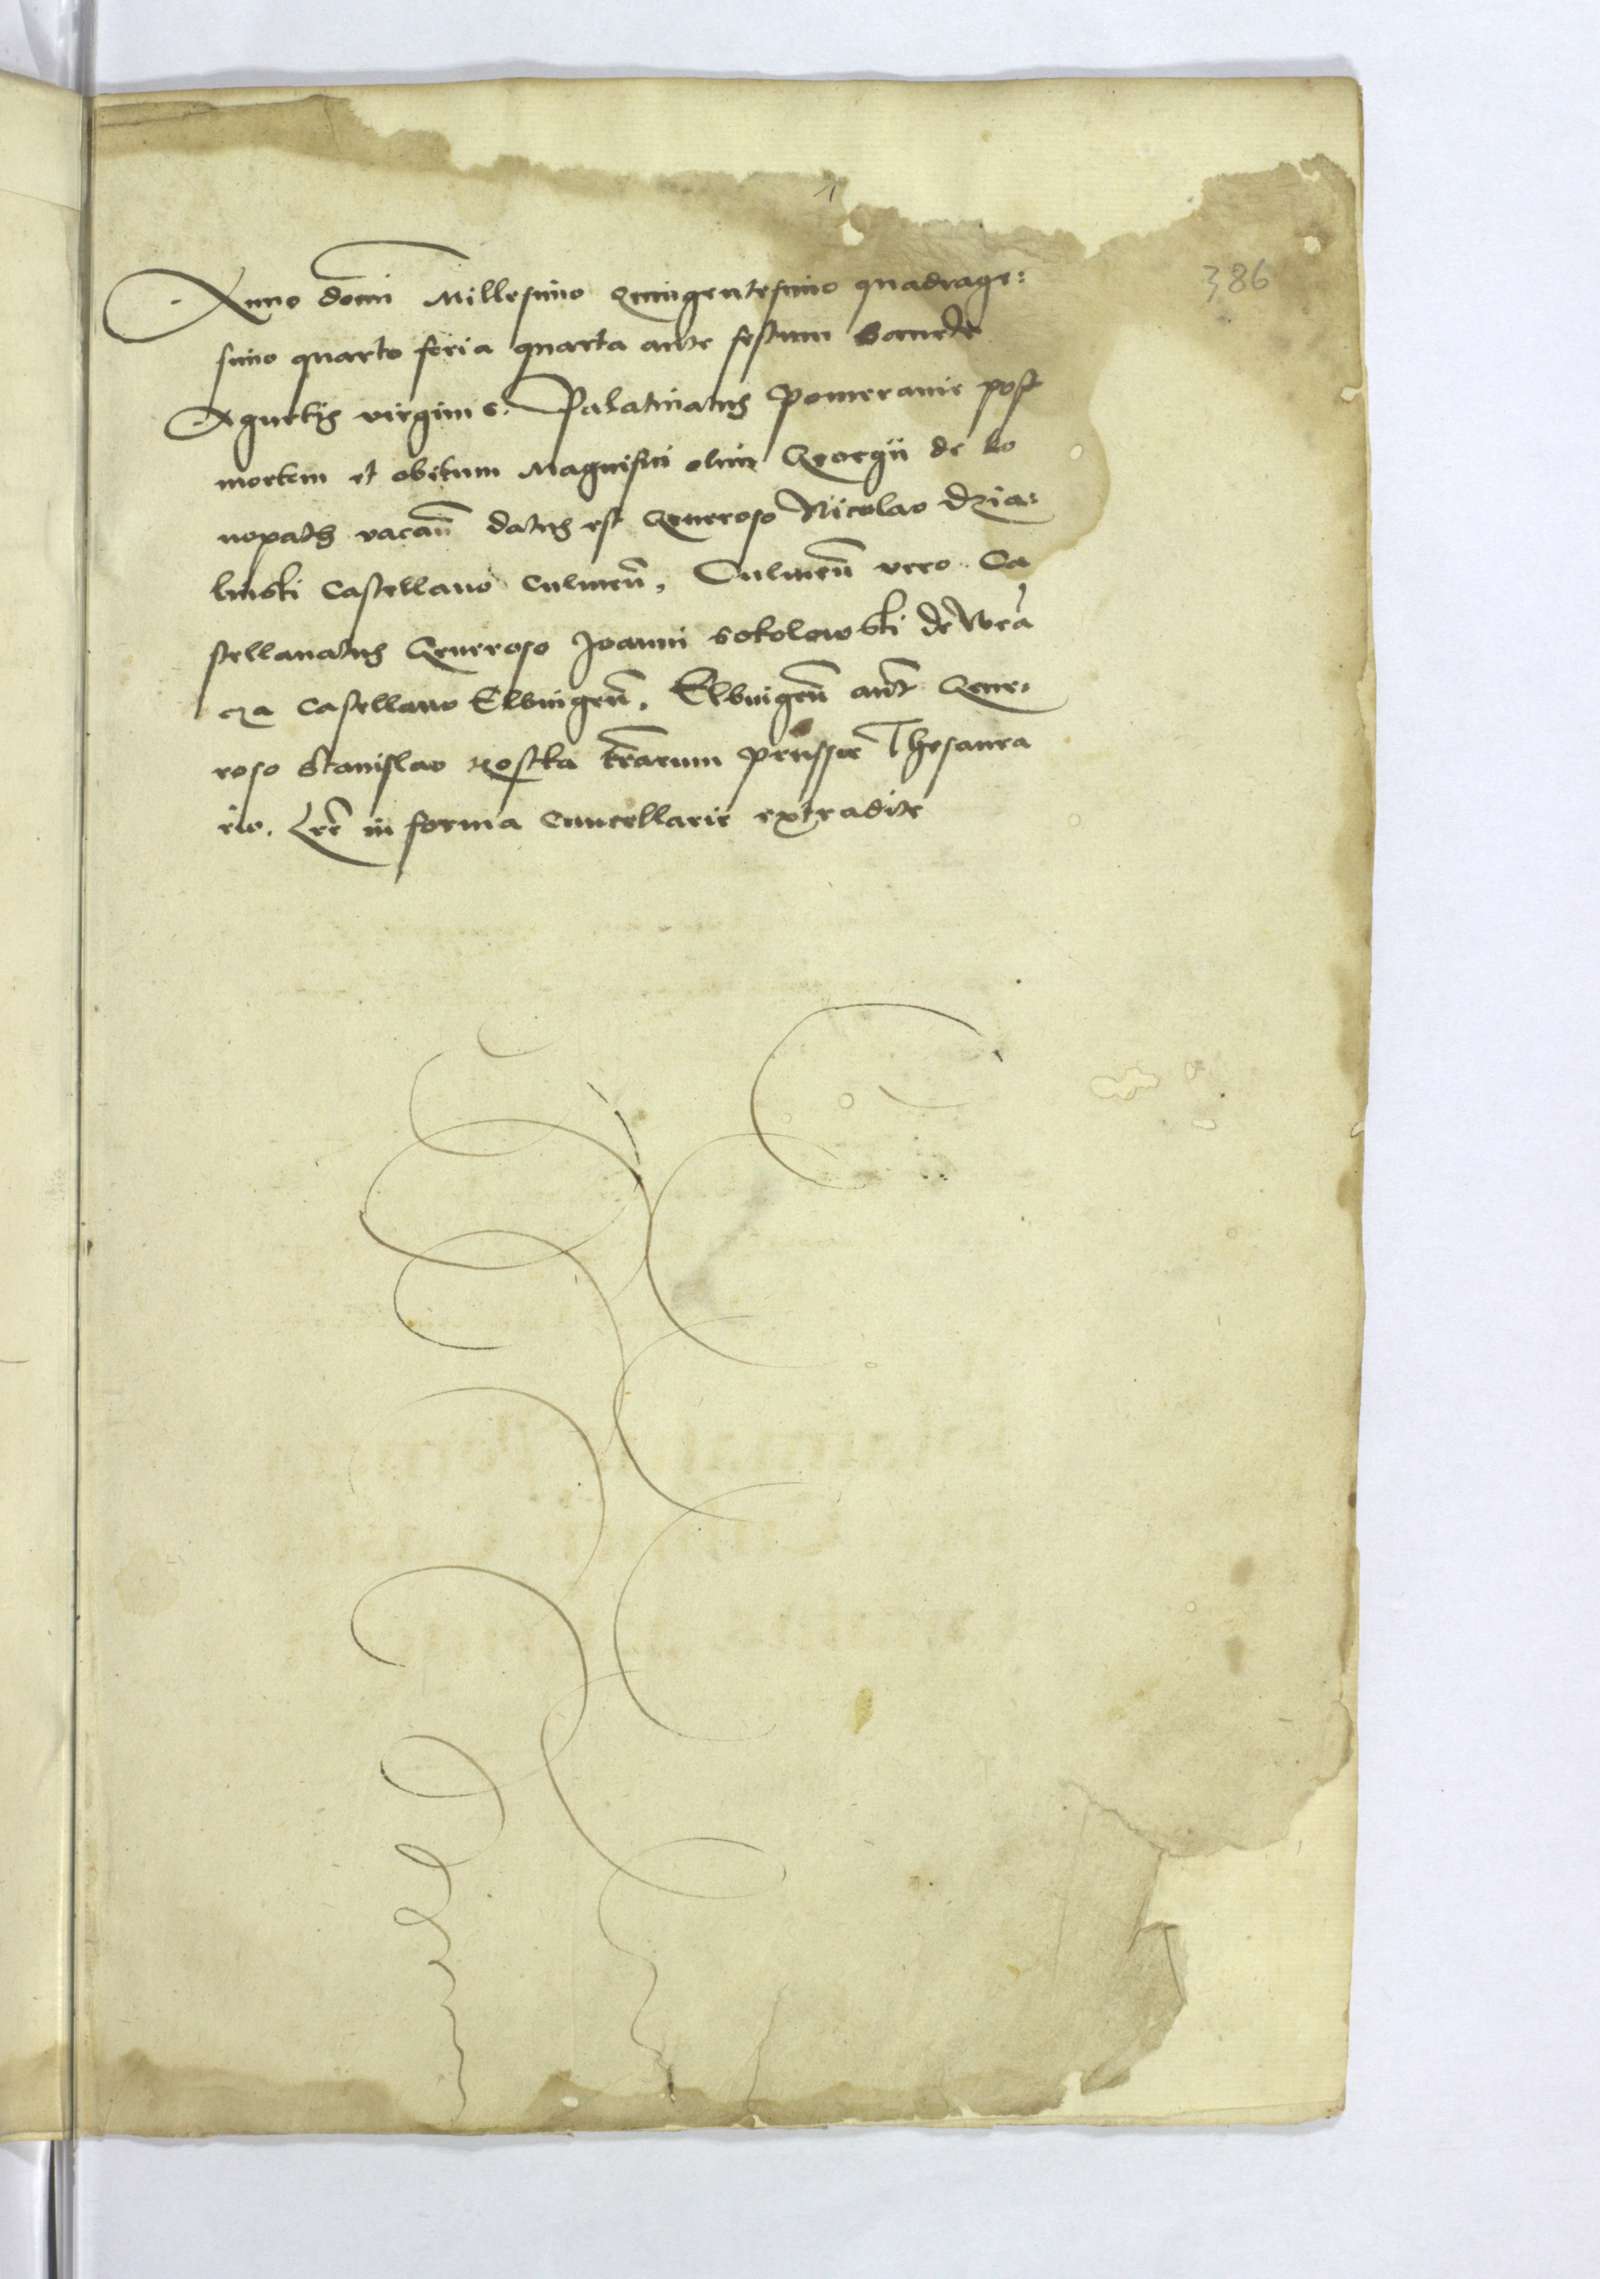 386
Anno domi Millesimo Quingentesimo quadrage:
simo quarto feria quarta ante festum Sancte
Agnetis virginis. Palatinatus Pomeranie post
mortem et obitum Magnifici olim Georgii de ko
nopath vacan̄ datus est Generoso Nicolao dzia:
linski Castellano Culmen̄, Culmen̄ vero Ca
stellanatus Generoso Joanni Sokolowski de Wrā
cza Castellano Elbingen̄. Elbingen̄ aut̄ Gene:
roso Stanislao kostka tr̄arum prussie Thesaura
rio. Lr̄e in forma Cancellarie extradite